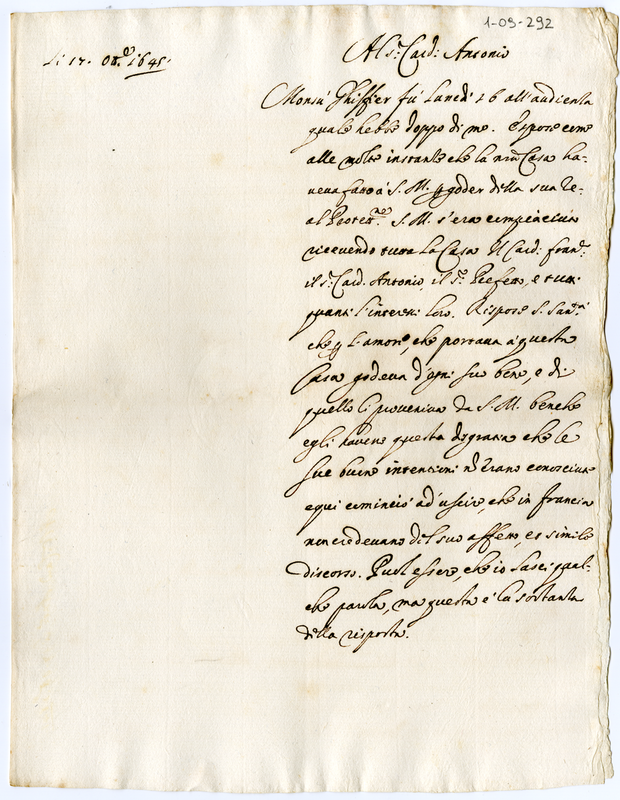 1-09-292
Li 17. Ott.e 1645.
Al s.r Card: Antonio
Monsù Ghiffier fù Lunedi 16 all'audienza
quale hebbe doppo di me. Espose come
alle molte instanze che la mia Casa ha-
ueua fatto à S. M. p goder della sua Re-
al Protett.ne S. M. s'era compiaciuta
riceuendo tutta La Casa Il Card: fran.co
il s.r Card. Antonio, il s.r Prefetto, e tutti
quanti l'interessi loro. Rispose S. San.tà
che p l'amore, che portaua à questa
Casa godeua d'ogni suo bene, e di
quello li proueniua da S. M. benche
egli hauesse questa disgratia che le
sue buone intentioni nõ erano conosciute
e qui cominciò ad'uscire, che in francia
non credeuano del suo affetto, et simile
discorso. Puol essere, che io lasci qual-
che parola, ma questa é la sostanza
della risposta.